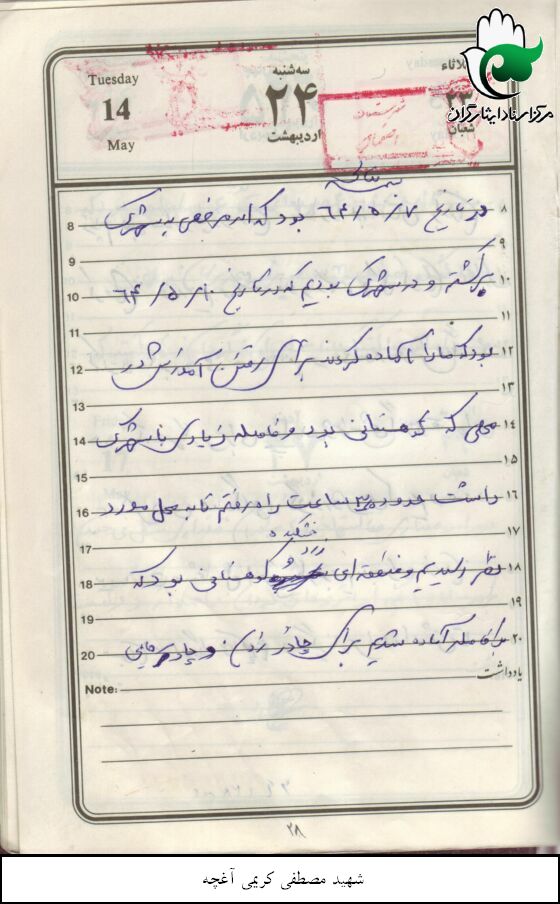 Tuesday
14
May
سه‌شنبه
۲۴
اردیبهشت
ثلاثاء
۲۳
شعبان
مرکز اسناد ایثارگران
بسمه تعالی
8 در تاریخ ۶۴/۵/۷ بود که از مرخصی به شهرک ۸
9 ۹
10 برگشته و در شهرک بودیم که در تاریخ ۶۴/۵/۱۰ ۱۰
11 ۱۱
12 بود که ما را آماده کردند برای رفتن آموزش در ۱۲
13 ۱۳
14 محلی که کوهستانی بود و فاصله زیادی با شهرک ۱۴
15 ۱۵
16 داشت حدود ساعت راه رفتیم تا به محل مورد ۱۶
17 خشکیده ۱۷
18 نظر رسیدیم و منطقه‌ای کوهستانی بود که ۱۸
19 ۱۹
20 بلافاصله آماده شدیم برای چادر زدن و چادرهایی ۲۰
Note: یادداشت
۲۸
شهید مصطفی کریمی آغچه